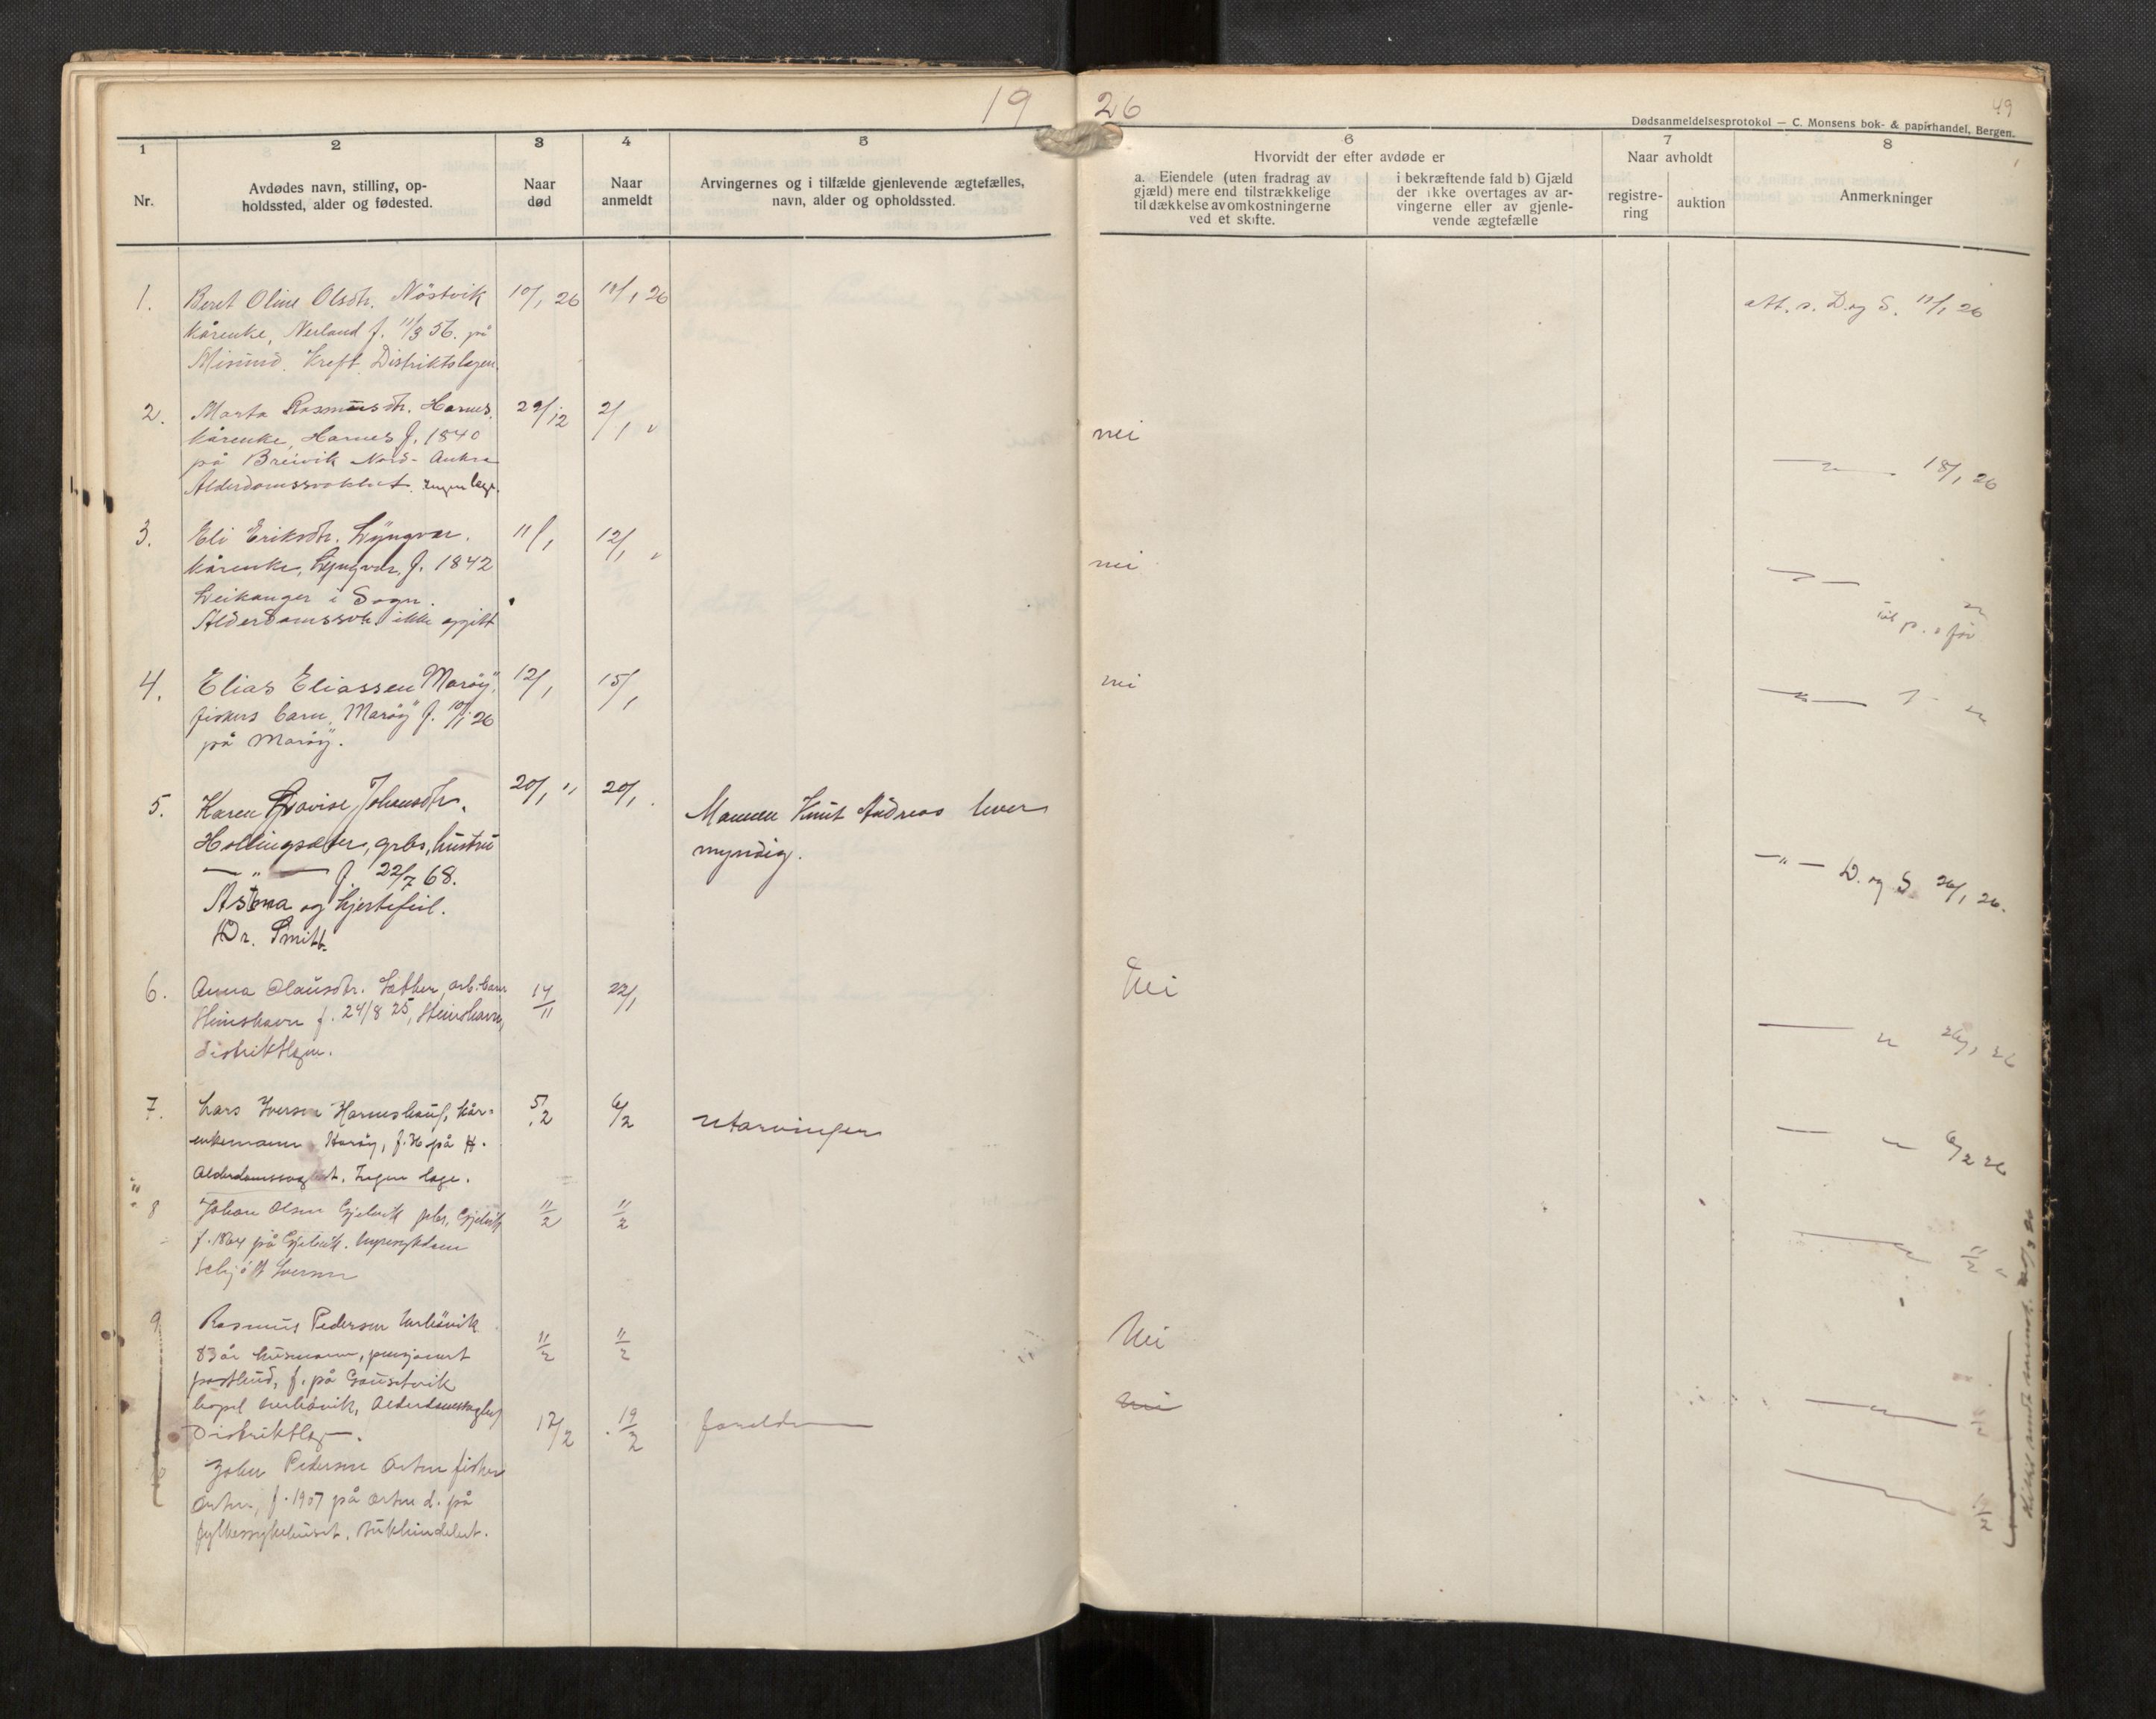 19 26
49
Dødsanmeldelsesprotokol — C. Monsens bok- & papirhandel, Bergen.
1 2 3 4 5 6 7 8
Nr.
Avdødes navn, stilling, op-
holdssted, alder og fødested.
Naar
død
Naar
anmeldt
Arvingernes og i tilfælde gjenlevende ægtefælles,
navn, alder og opholdssted.
Hvorvidt der efter avdøde er
a. Eiendele (uten fradrag av
gjæld) mere end tilstrækkelige
til dækkelse av omkostningerne
ved et skifte.
i bekræftende fald b) Gjæld
der ikke overtages av ar-
vingerne eller av gjenle-
vende ægtefælle
Naar avholdt
registre-
ring
auktion
Anmerkninger
1. Beret Oline Olsdtr. Nöstvik 10/1 26 11/1 26
kårenke, Nerland f. 11/3 56. på
Misund. Kreft. Distriktslegen.
Att. s. D. og S. 11/1 26
2. Marta Rasmusdtr. Harnes. 29/12 2/1 "
kårenke, Harnes f. 1840
på Breivik Nord-Aukra
Alderdomssvakhet. Ingen læge.
nei
—"— 18/1 26
3. Eli Eriksdtr. Lyngvær. 11/1 12/1 "
kårenke, Lyngvær, f. 1842
Leikanger i Sogn.
Alderdomssv. ikke opgitt
nei
—"—
4. Elias Eliassen Maröy, 12/1 15/1
fiskers barn, Maröy f. 10/1 26
på Maröy.
nei
—"—
5. Karen Lovise Johansdtr. 20/1 " 20/1
Hollingsæter, grbr. hustru
—"— f. 22/7 68.
Astma og hjertefeil.
Dr. Smitt.
Mannen Knut Andreas lever
myndig.
—"— D. og S. 26/1 26.
6. Anna Olausdtr. Sæther, arb. barn 14/11 22/1
Steinshavn f. 24/8 25, Steinshavn,
distriktlegen.
Nei
—"— 26/1 26
7. Lars Iversen Harneshaug, kår- 5/2 6/2
enkemann Haröy, f. 36 på H.
Alderdomssvaghet. Ingen læge.
utarvinger
—"— 6/2 26
8 Johan Olsen Gjelvik gbr. Gjelvik 11/2 11/2
f. 1864 på Gjelvik. nyresykdom
Schjött Iversen
—"— 11/2 "
9 Rasmus Pedersen 11/2 11/2
83 år husmann, pensjonert
postbud, f. på Gausetvik
bopel Alderdomssvaghet
Distriktlæg—.
Nei
—"—
John Pedersen Orten fisker 17/2 19/2
Orten, f. 1907 på Orten d. på
fylkessykehuset. tuberkulose
foreldre
nei
—"—